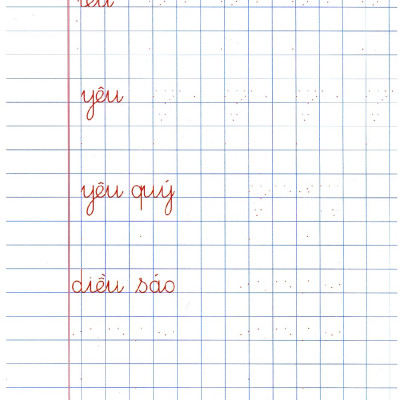 yêu
yêu quý
diều sáo